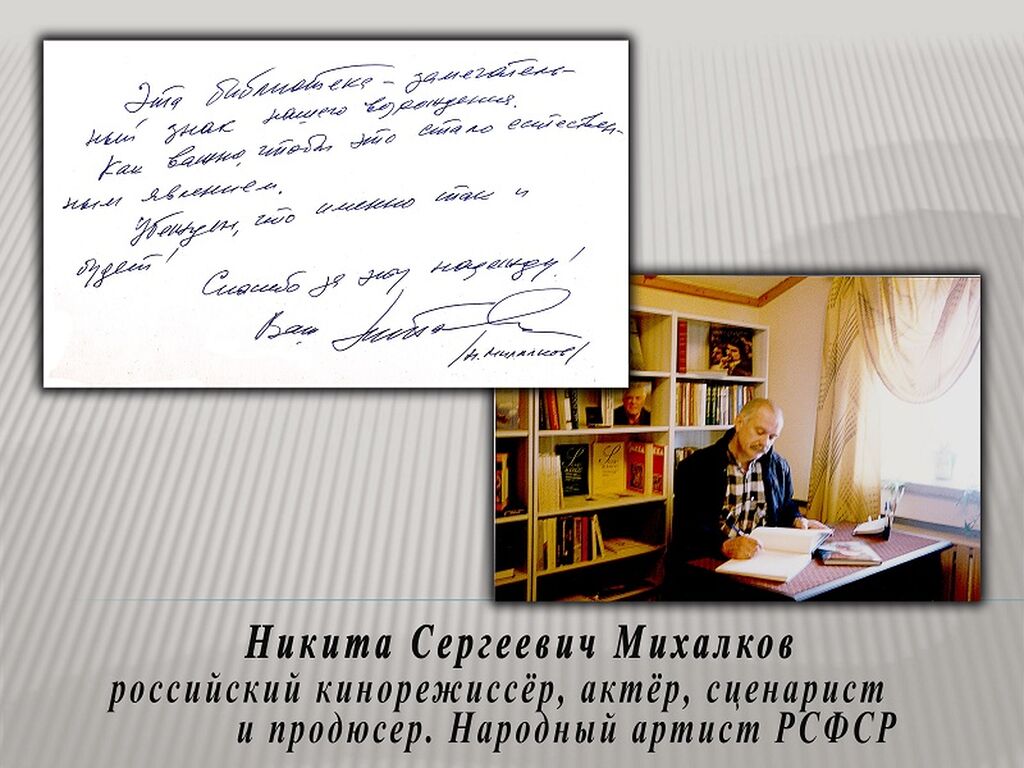 Эта библиотека – замечатель-
ный знак нашего возрождения.
Как важно, чтобы это стало естествен-
ным явлением.
Убежден, что именно так и
будет!
Спасибо за эту надежду!
Ваш
/Н. Михалков/
Никита Сергеевич Михалков
российский кинорежиссёр, актёр, сценарист
и продюсер. Народный артист РСФСР